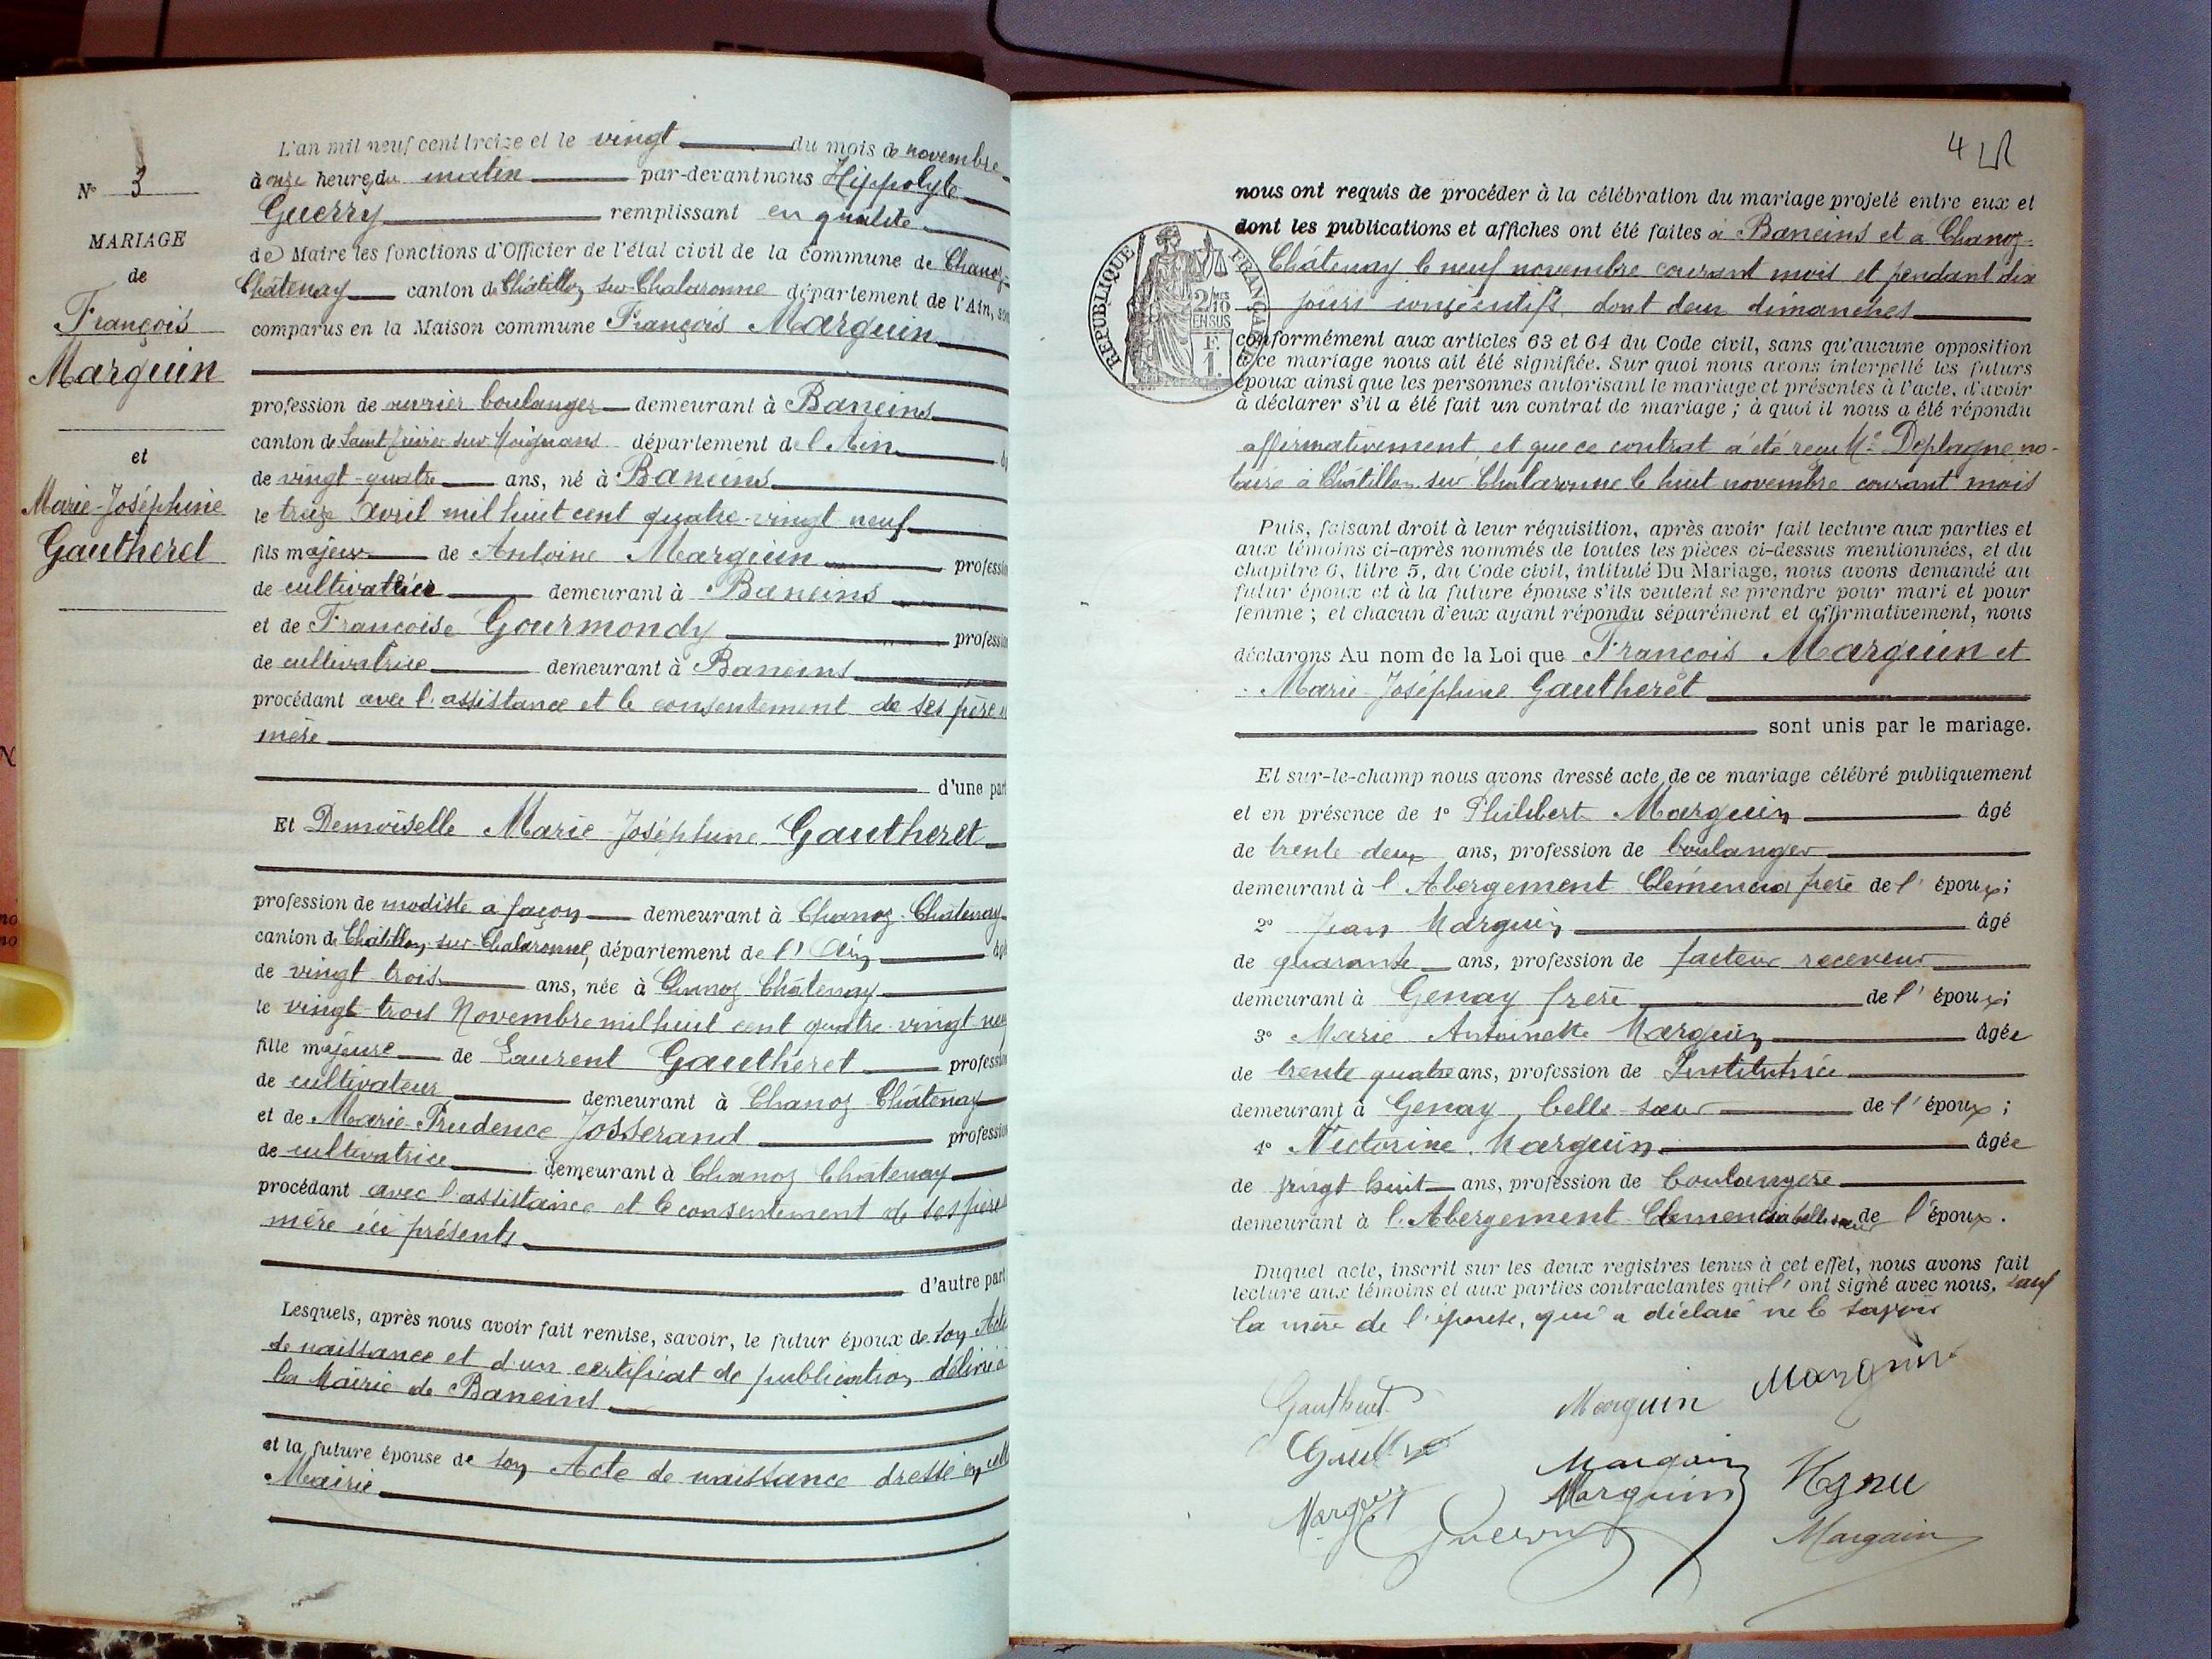 N° 3
MARIAGE
de
François
Marguin
et
Marie-Joséphine
Gautheret
L'an mil neuf cent treize et le vingt du mois de novembre
à onze heures du matin par-devant nous Hippolyte
Guerry remplissant en qualité
de Maire les fonctions d'Officier de l'état civil de la commune de Chanoz-
Châtenay canton de Châtillon sur Chalaronne département de l'Ain, so
comparus en la Maison commune François Marguin
profession de ouvrier boulanger demeurant à Baneins
canton de Saint Trivier sur Moignans département de l'Ain
de vingt-quatre ans, né à Baneins
le treize Avril mil huit cent quatre-vingt neuf
fils majeur de Antoine Marguin professi
de cultivateur demeurant à Baneins
et de Françoise Gourmondy professi
de cultivatrice demeurant à Baneins
procédant avec l'assistance et le consentement de ses père et
mère
d'une part
Et Demoiselle Marie-Joséphine Gautheret
profession de modiste à façon demeurant à Chanoz-Châtenay
canton de Châtillon-sur-Chalaronne, département de l'Ain
de vingt trois ans, née à Chanoz Châtenay
le vingt-trois Novembre mil huit cent quatre-vingt neu
fille majeure de Laurent Gautheret profession
de cultivateur demeurant à Chanoz Châtenay
et de Marie-Prudence Josserand profession
de cultivatrice demeurant à Chanoz Châtenay
procédant avec l'assistance et le consentement de ses père
mère ici présents
d'autre part
Lesquels, après nous avoir fait remise, savoir, le futur époux de son Acte
de naissance et d'un certificat de publication délivré à
la Mairie de Baneins
et la future épouse de son Acte de naissance dressé en cette
Mairie
4
nous ont requis de procéder à la célébration du mariage projeté entre eux et
dont les publications et affiches ont été faites à Baneins et à Chanoz-
Châtenay le neuf novembre courant mois et pendant dix
jours consécutifs, dont deux dimanches
REPUBLIQUE FRANÇAISE
2/10
EN SUS
F.
1
conformément aux articles 63 et 64 du Code civil, sans qu'aucune opposition
à ce mariage nous ait été signifiée. Sur quoi nous avons interpellé les futurs
époux ainsi que les personnes autorisant le mariage et présentes à l'acte, d'avoir
à déclarer s'il a été fait un contrat de mariage ; à quoi il nous a été répondu
affirmativement, et que ce contrat a été reçu Me Deplagne no-
taire à Châtillon sur Chalaronne le huit novembre courant mois
Puis, faisant droit à leur réquisition, après avoir fait lecture aux parties et
aux témoins ci-après nommés de toutes les pièces ci-dessus mentionnées, et du
chapitre 6, titre 5, du Code civil, intitulé Du Mariage, nous avons demandé au
futur époux et à la future épouse s'ils veulent se prendre pour mari et pour
femme ; et chacun d'eux ayant répondu séparément et affirmativement, nous
déclarons Au nom de la Loi que François Marguin et
Marie-Joséphine Gautheret
sont unis par le mariage.
Et sur-le-champ nous avons dressé acte de ce mariage célébré publiquement
et en présence de 1° Philibert Marguin âgé
de trente deux ans, profession de boulanger
demeurant à l'Abergement Clémencia frère de l'époux ;
2° Jean Marguin âgé
de quarante ans, profession de facteur receveur
demeurant à Genay frère de l'époux ;
3° Marie Antoinette Marguin âgée
de trente quatre ans, profession de Institutrice
demeurant à Genay, belle-sœur de l'époux ;
4° Victorine Marguin âgée
de vingt huit ans, profession de boulangère
demeurant à l'Abergement Clemencia belle sœur de l'époux.
Duquel acte, inscrit sur les deux registres tenus à cet effet, nous avons fait
lecture aux témoins et aux parties contractantes qui l'ont signé avec nous, sauf
la mère de l'épouse, qui a déclaré ne le savoir
Gautheret Marguin Marguin
Marguin
Marguin Marguin
Guerry Marguin